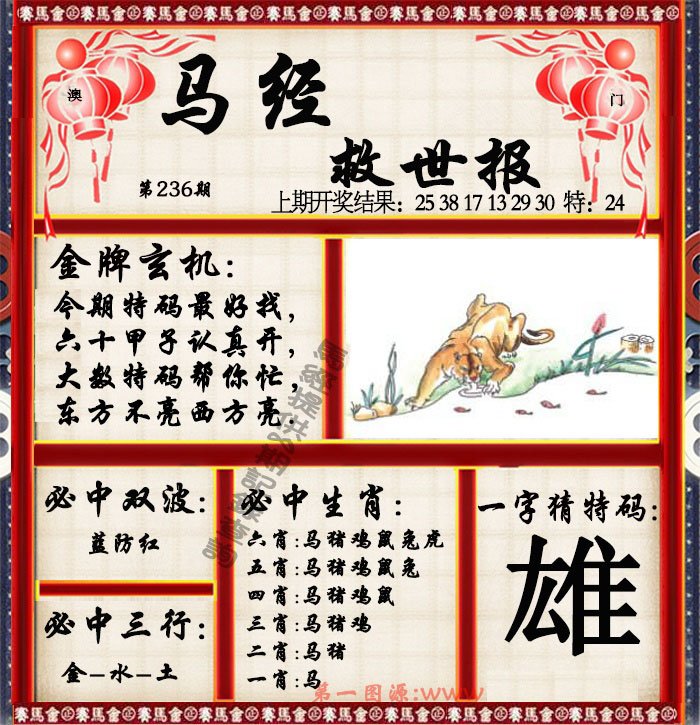 賽馬會㊣賽馬會㊣賽馬會㊣賽馬會㊣賽馬會㊣賽馬會㊣賽馬會㊣賽馬會㊣
澳
门
马经
救世报
第236期
上期开奖结果：25 38 17 13 29 30 特：24
金牌玄机：
今期特码最好找，
六十甲子认真开，
大数特码帮你忙，
东方不亮西方亮．
必中双波：
蓝防红
必中三行：
金–水–土
必中生肖：
六肖:马猪鸡鼠兔虎
五肖:马猪鸡鼠兔
四肖:马猪鸡鼠
三肖:马猪鸡
二肖:马猪
一肖:马
一字猜特码:
雄
第一图源:www